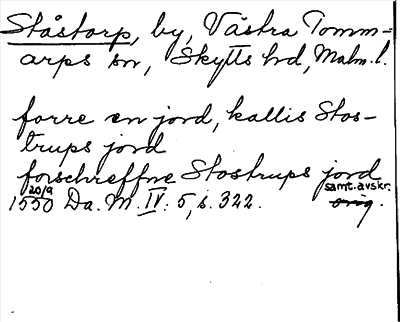 Ståstorp, by, Västra Tomm=
arps sn, Skytts hd, Malm. l.
forre en jord, kallis Stos-
trups jord
forschreffne Stostrups jord
samt. avskr.
1550 20/9 Da. M. IV: 5, s. 322. orig.